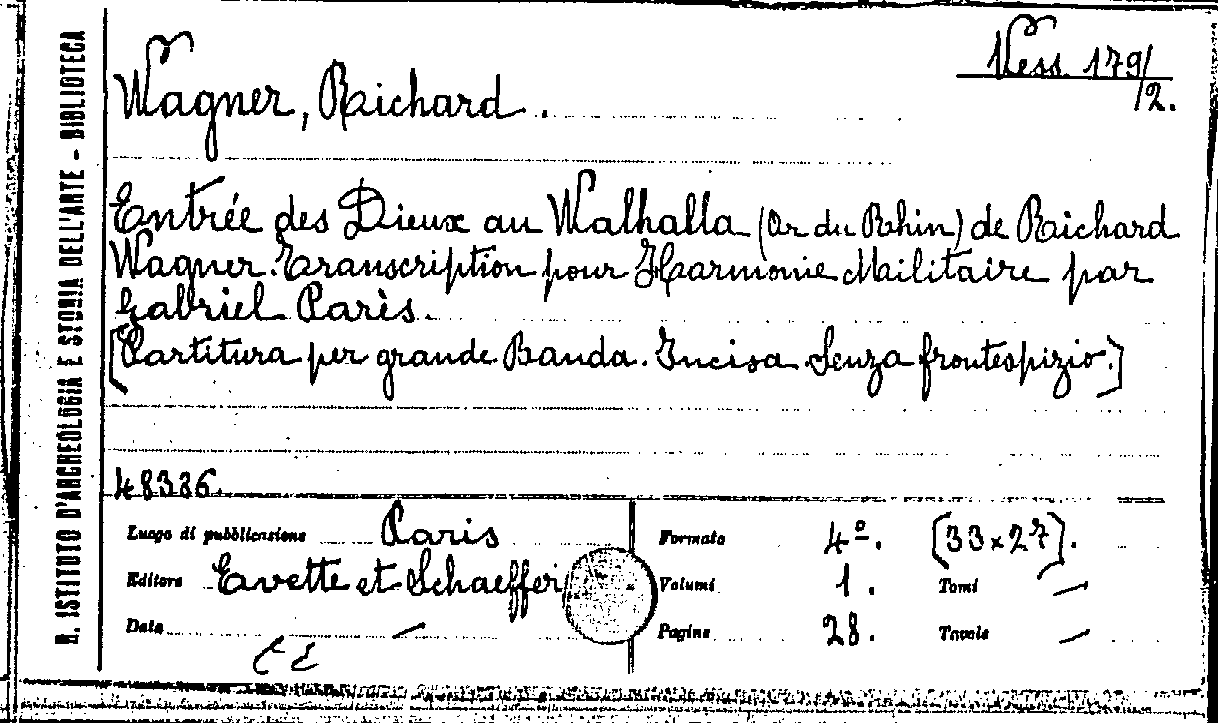 R. ISTITUTO D'ARCHEOLOGIA E STORIA DELL'ARTE - BIBLIOTECA
Vess. 179/2.
Wagner, Richard.
Entrée des Dieux au Walhalla (Or du Rhin) de Richard
Wagner. Transcription pour Harmonie Militaire par
Gabriel Parès.
[Partitura per grande Banda. Incisa. Senza frontespizio.]
48336.
Luogo di pubblicazione Paris
Editore Evette et Schaeffer
Data —
Formato 4º. [33×27].
Volumi 1. Tomi —
Pagine 28. Tavole —